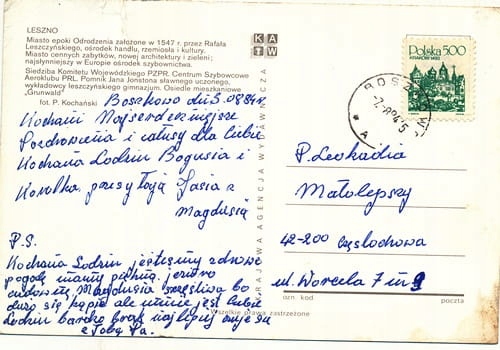 LESZNO
Miasto epoki Odrodzenia założone w 1547 r. przez Rafała
Leszczyńskiego, ośrodek handlu, rzemiosła i kultury.
Miasto cennych zabytków, nowej architektury i zieleni;
najsłynniejszy w Europie ośrodek szybownictwa.
Siedziba Komitetu Wojewódzkiego PZPR. Centrum Szybowcowe
Aeroklubu PRL. Pomnik Jana Jonstona sławnego uczonego,
wykładowcy leszczyńskiego gimnazjum. Osiedle mieszkaniowe
„Grunwald”
fot. P. Kochański
KAW
KRAJOWA AGENCJA WYDAWNICZA
Boszkowo du 5.08.84r.
Kochani Najserdeczniejsze
Pozdrowienia i całusy dla Ciebie
Kochana Lodziu Bogusia i
Karolka przesyłają Jasia z
Magdusią
P.S.
Kochana Lodziu jesteśmy zdrowe
pogodę mamy piękną, jezioro
cudowne, Magdusia szczęśliwa bo
się kąpie ale
Lodziu bardzo brak najlepiej
z Tobą Pa.
Polska 500
P. Leokadia
Małolepszy
42-200 Częstochowa
ul. Worcela 7 m 9
ulica
kod
poczta
Wszelkie prawa zastrzeżone